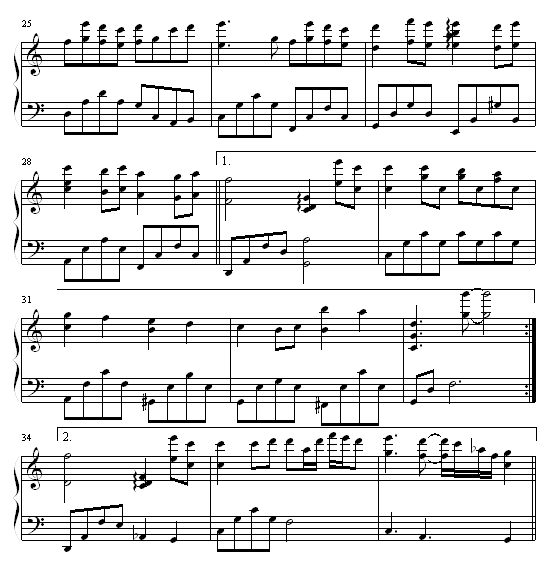 25
28
1.
31
34
2.